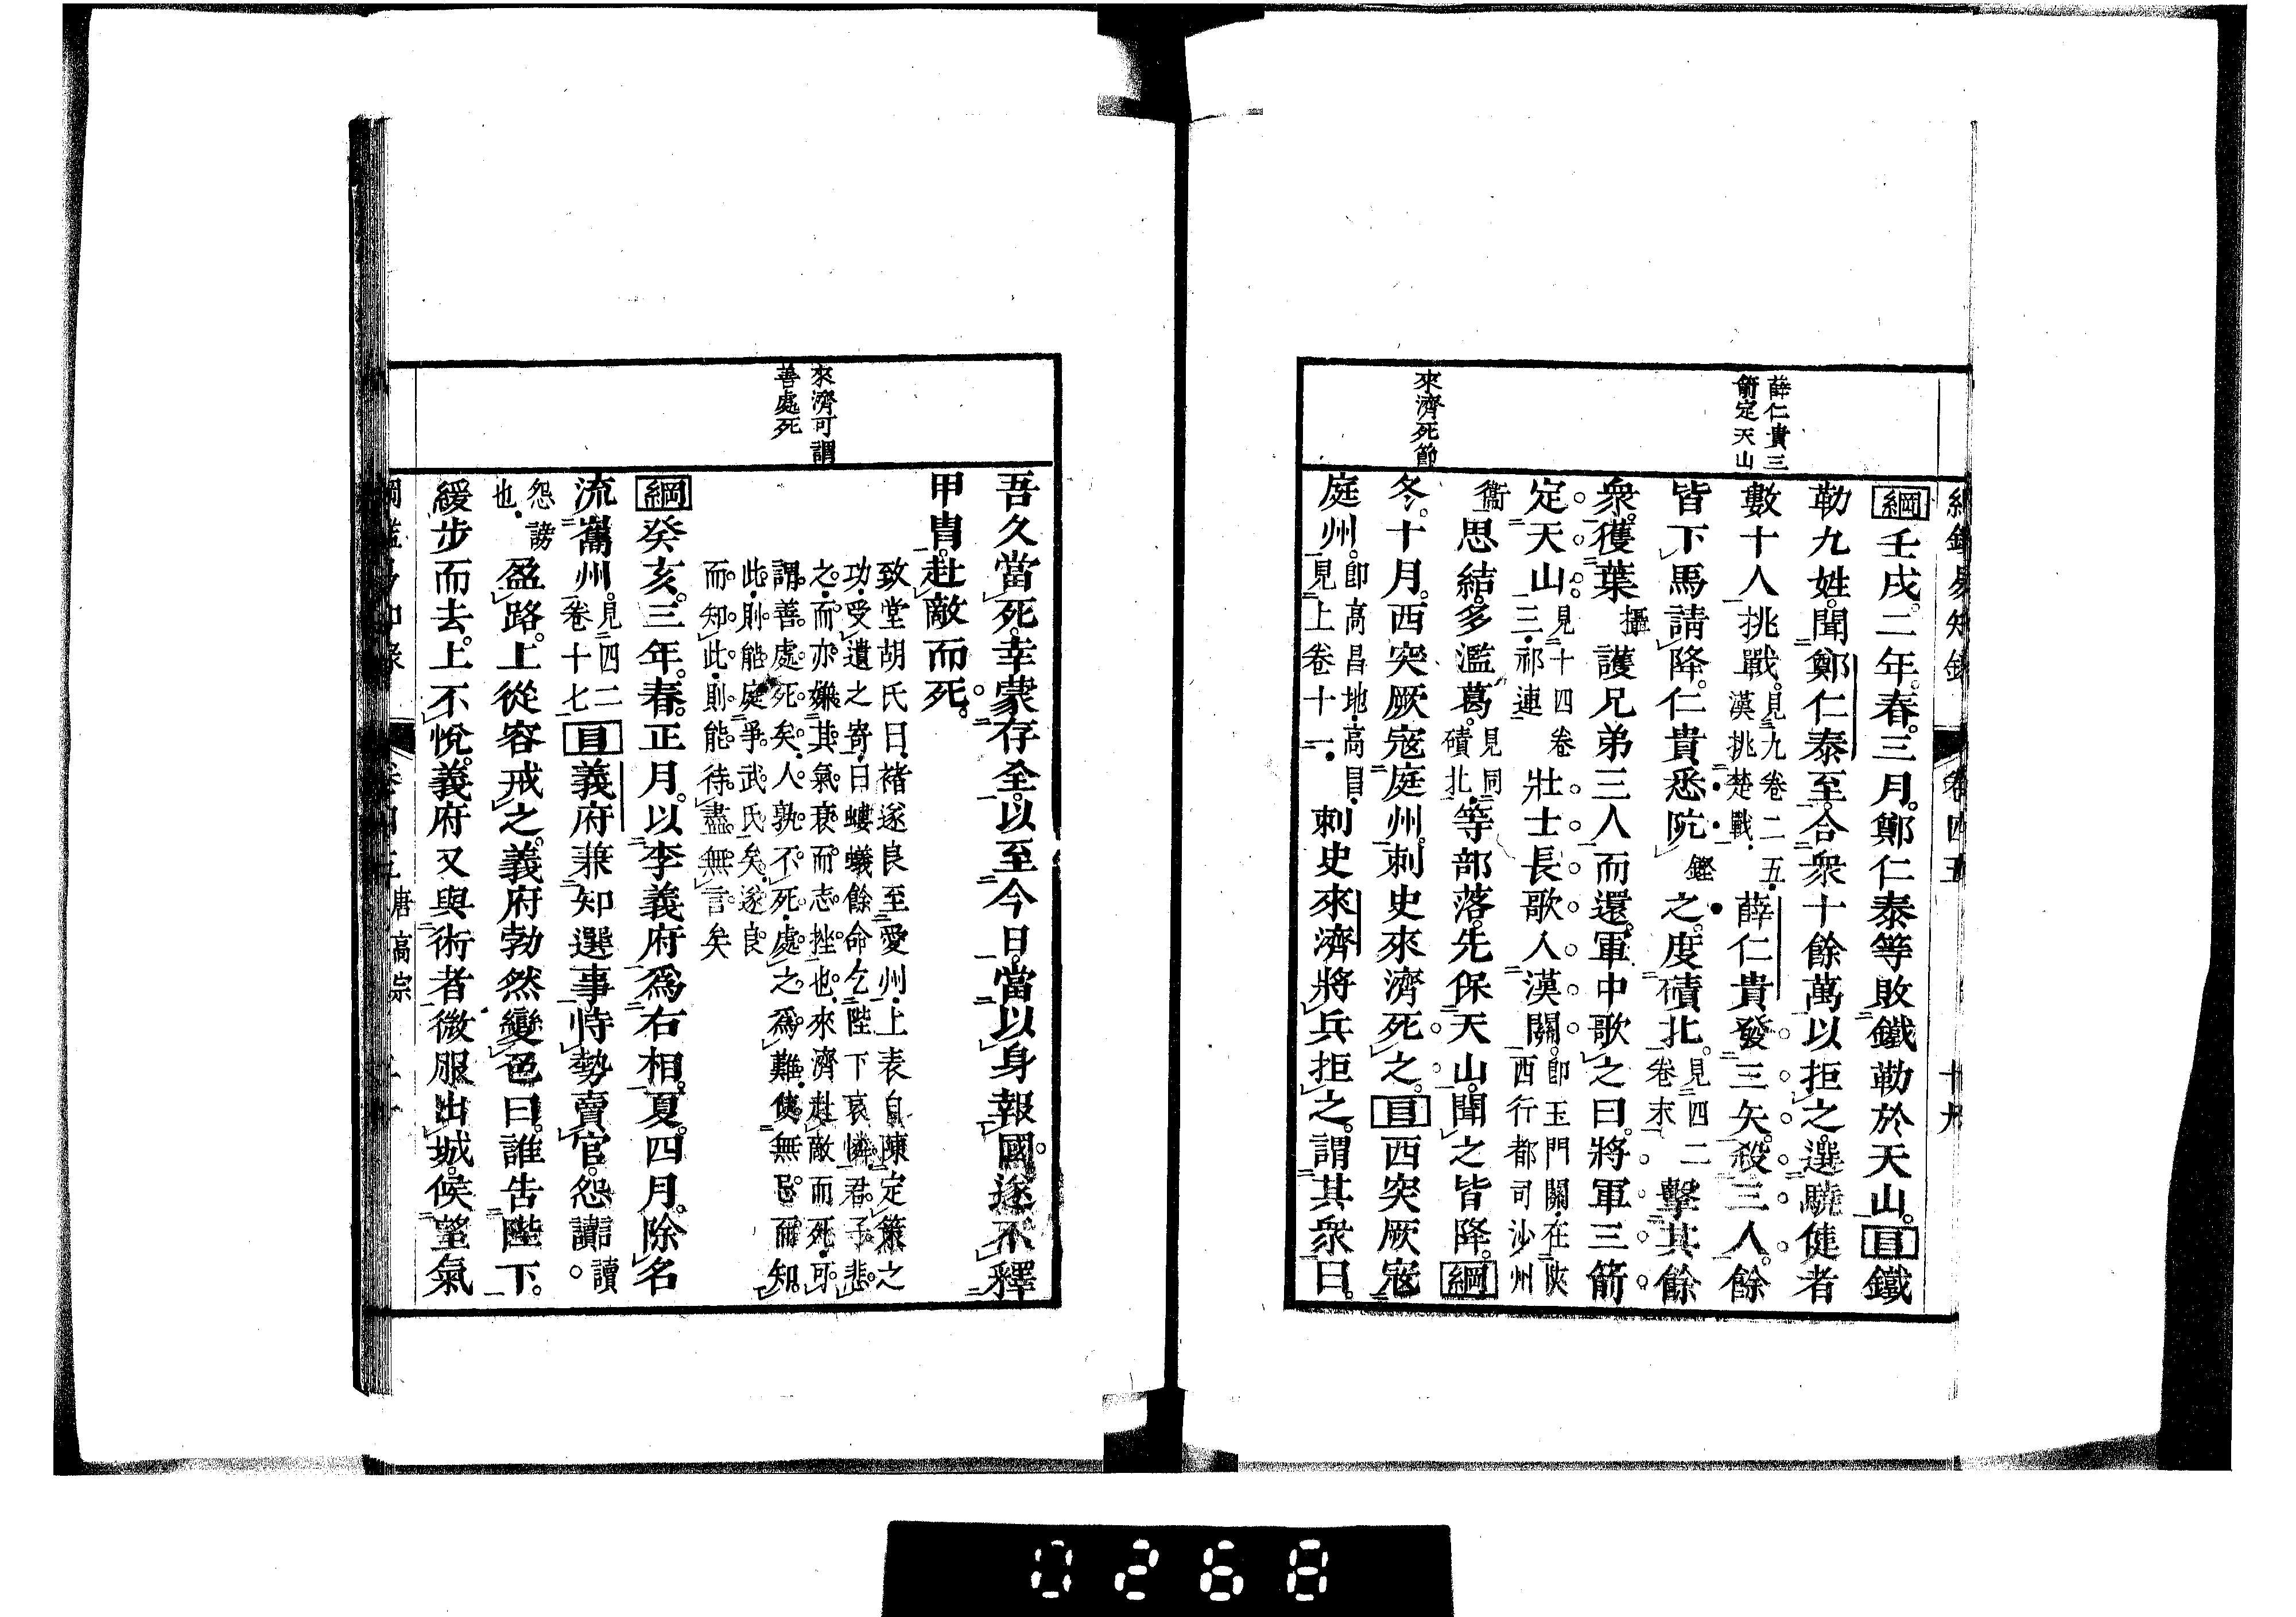 薛仁貴三
箭定天山
來濟死節
綱壬戌二年春三月鄭仁泰等敗鐵勒於天山目鐵
勒九姓聞鄭仁泰至合衆十餘萬以拒之選驍健者
數十人挑戰見九卷二五漢挑楚戰薛仁貴發三矢殺三人餘
皆下馬請降仁貴悉阬鏗之度磧北見四二卷末擊其餘
衆獲葉攝護兄弟三人而還軍中歌之曰將軍三箭
定天山見十四卷三祁連壯士長歌入漢關即玉門關在陝西行都司沙州
衞思結多濫葛見同磧北等部落先保天山聞之皆降綱
冬十月西突厥寇庭州刺史來濟死之目西突厥寇
庭州即高昌地高昌見上卷十一刺史來濟將兵拒之謂其衆曰
來濟可謂
善處死
吾久當死幸蒙存全以至今日當以身報國遂不釋
甲冑赴敵而死
致堂胡氏曰褚遂良至愛州上表自陳定策之
功受遺之寄曰螻蟻餘命乞陛下哀憐君子悲
之而亦嫌其氣衰而志挫也來濟赴敵而死可
謂善處死矣人孰不死處之爲難使無忌而知
此則能庭爭武氏矣遂良
而知此則能待盡無言矣
綱癸亥三年春正月以李義府爲右相夏四月除名
流巂州見四二卷十七目義府兼知選事恃勢賣官怨讟讀
怨謗也盈路上從容戒之義府勃然變色曰誰告陛下
緩步而去上不悅義府又與術者微服出城候望氣
唐高宗